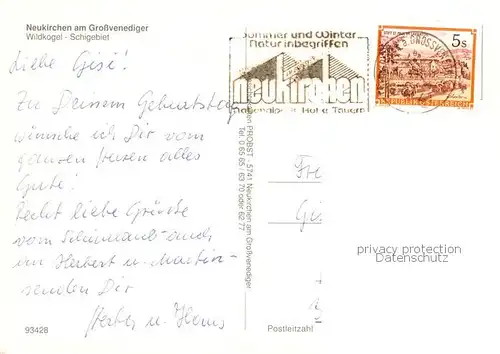 Neukirchen am Großvenediger
Wildkogel - Schigebiet
Liebe Gisi!
Zu Deinem Geburtstag
wünsche ich Dir vom
ganzen Herzen alles
Gute!
Recht liebe Grüsse
vom auch
Herbert u. Martin
senden Dir
u. Hans
93428
PROBST, 5741 Neukirchen am Großvenediger
Tel. 0 65 65 / 63 70 oder 62 77
Sommer und Winter
Natur inbegriffen
neukirchen
Nationalpark Hohe Tauern
5s
REPUBLIK ÖSTERREICH
Fr
Gi
privacy protection
Datenschutz
Postleitzahl